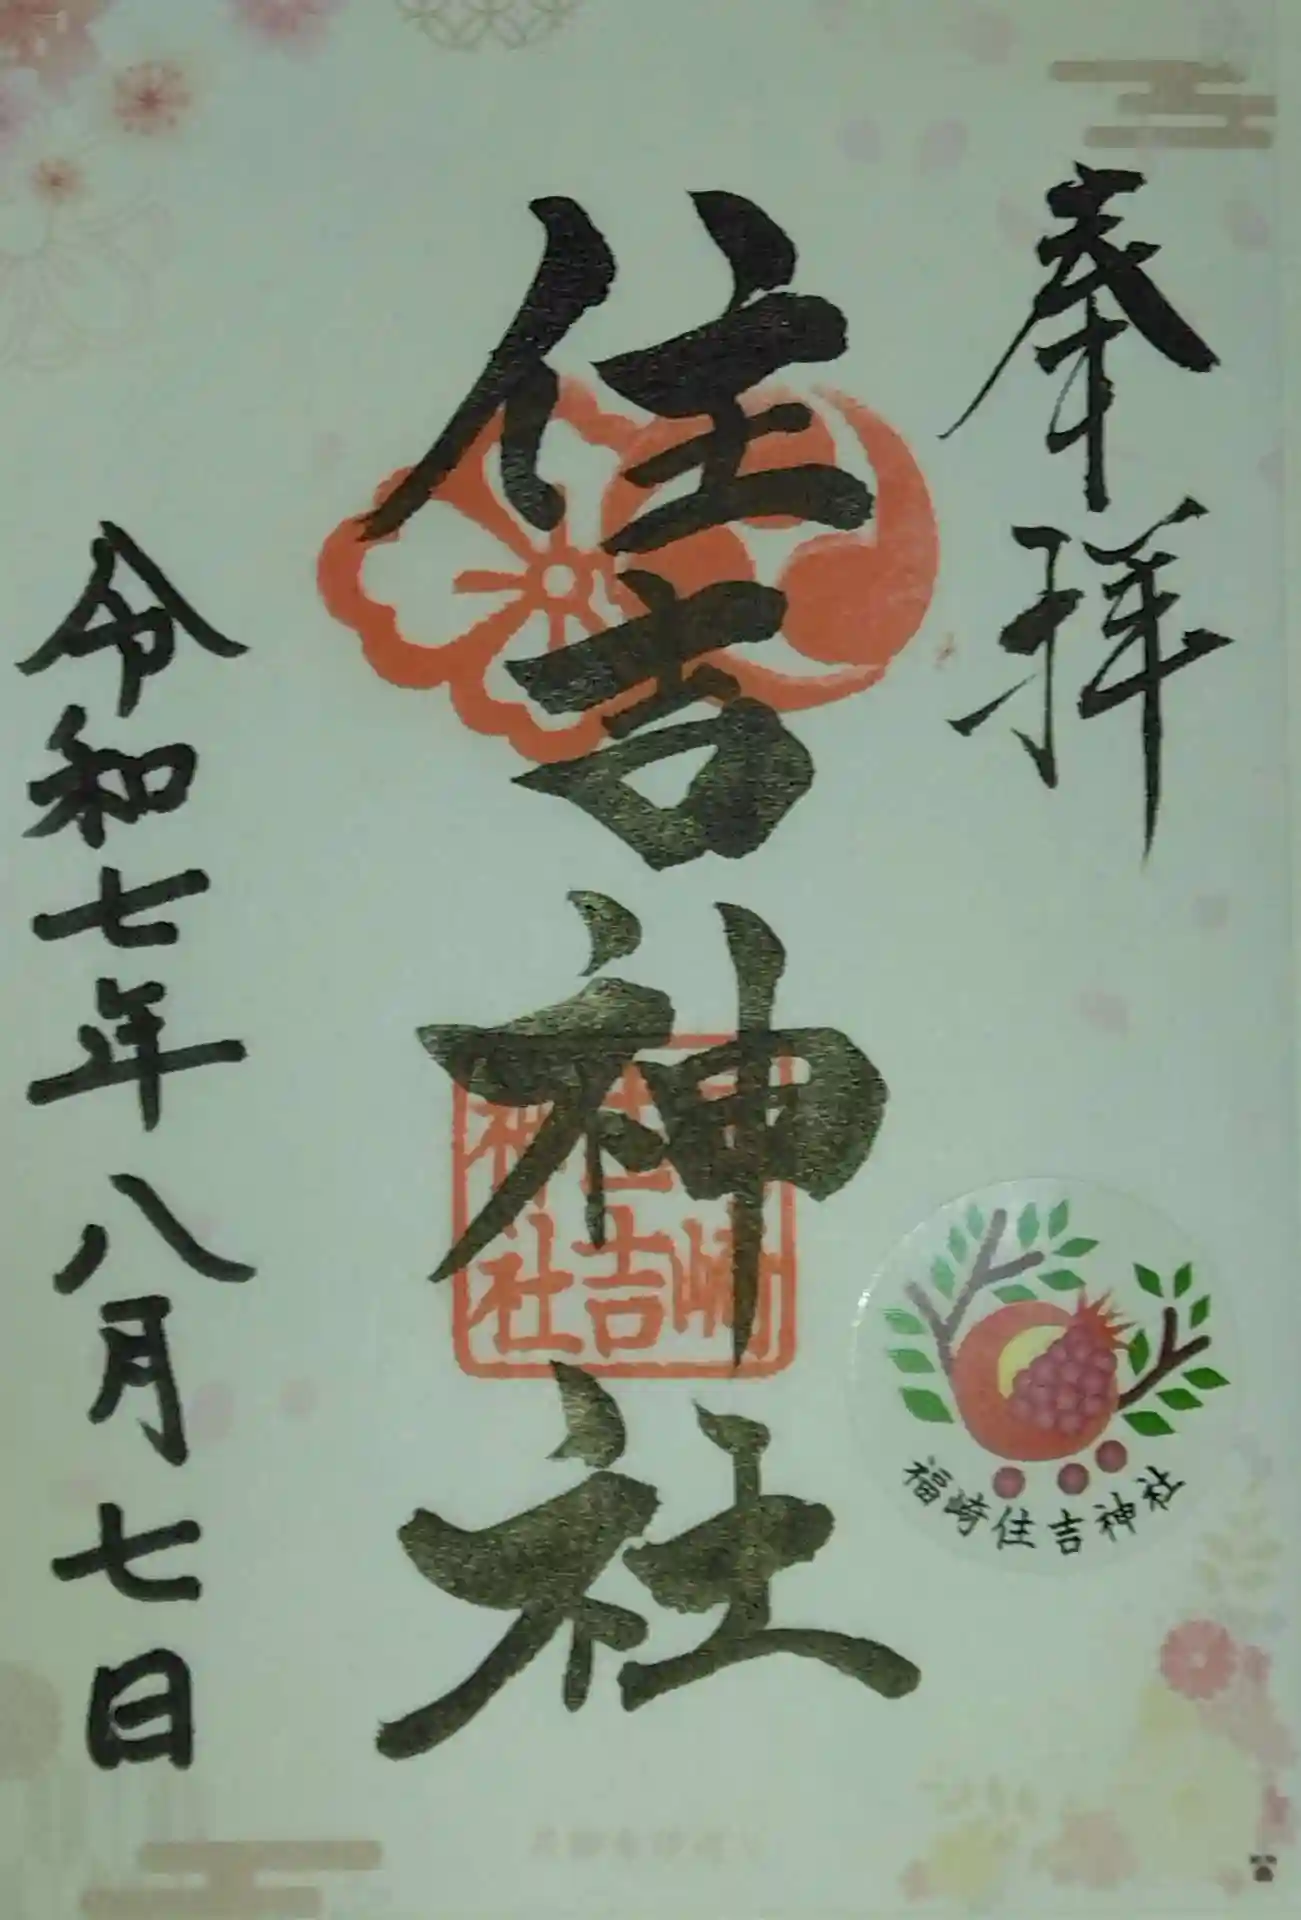 奉拝
住吉神社
崎
住吉
神社
福崎住吉神社
令和七年八月七日